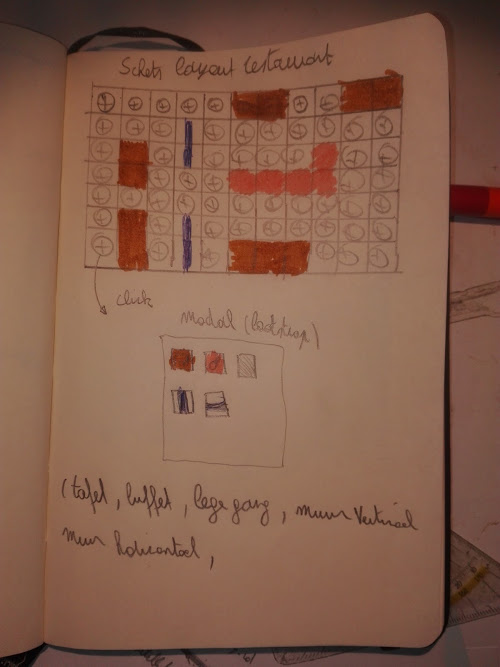 Schets layout restaurant
click
modal (bootstrap)
(tafel, buffet, lege gang, muur Verticaal
muur Horizontaal,